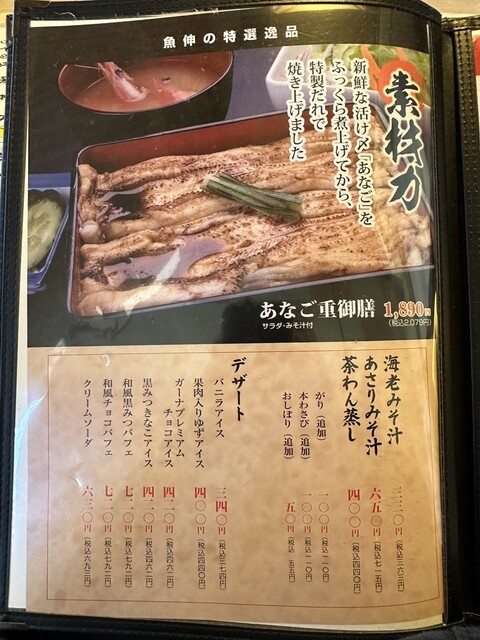 魚伸の特選逸品
素材力
新鮮な活け〆『あなご』を
ふっくら煮上げてから、
特製だれで
焼き上げました
あなご重御膳 1,890円
サラダ・みそ汁付 (税込2,079円)
海老みそ汁 三三〇円(税込三六三円)
あさりみそ汁 六五〇円(税込七一五円)
茶わん蒸し 四〇〇円(税込四四〇円)
がり(追加) 一〇〇円(税込一一〇円)
本わさび(追加) 一〇〇円(税込一一〇円)
おしぼり(追加) 五〇円(税込五五円)
デザート
バニラアイス 三四〇円(税込三七四円)
果肉入りゆずアイス 四〇〇円(税込四四〇円)
ガーナプレミアム
チョコアイス 四二〇円(税込四六二円)
黒みつきなこアイス 四二〇円(税込四六二円)
和風黒みつパフェ 七二〇円(税込七九二円)
和風チョコパフェ 七二〇円(税込七九二円)
クリームソーダ 六三〇円(税込六九三円)